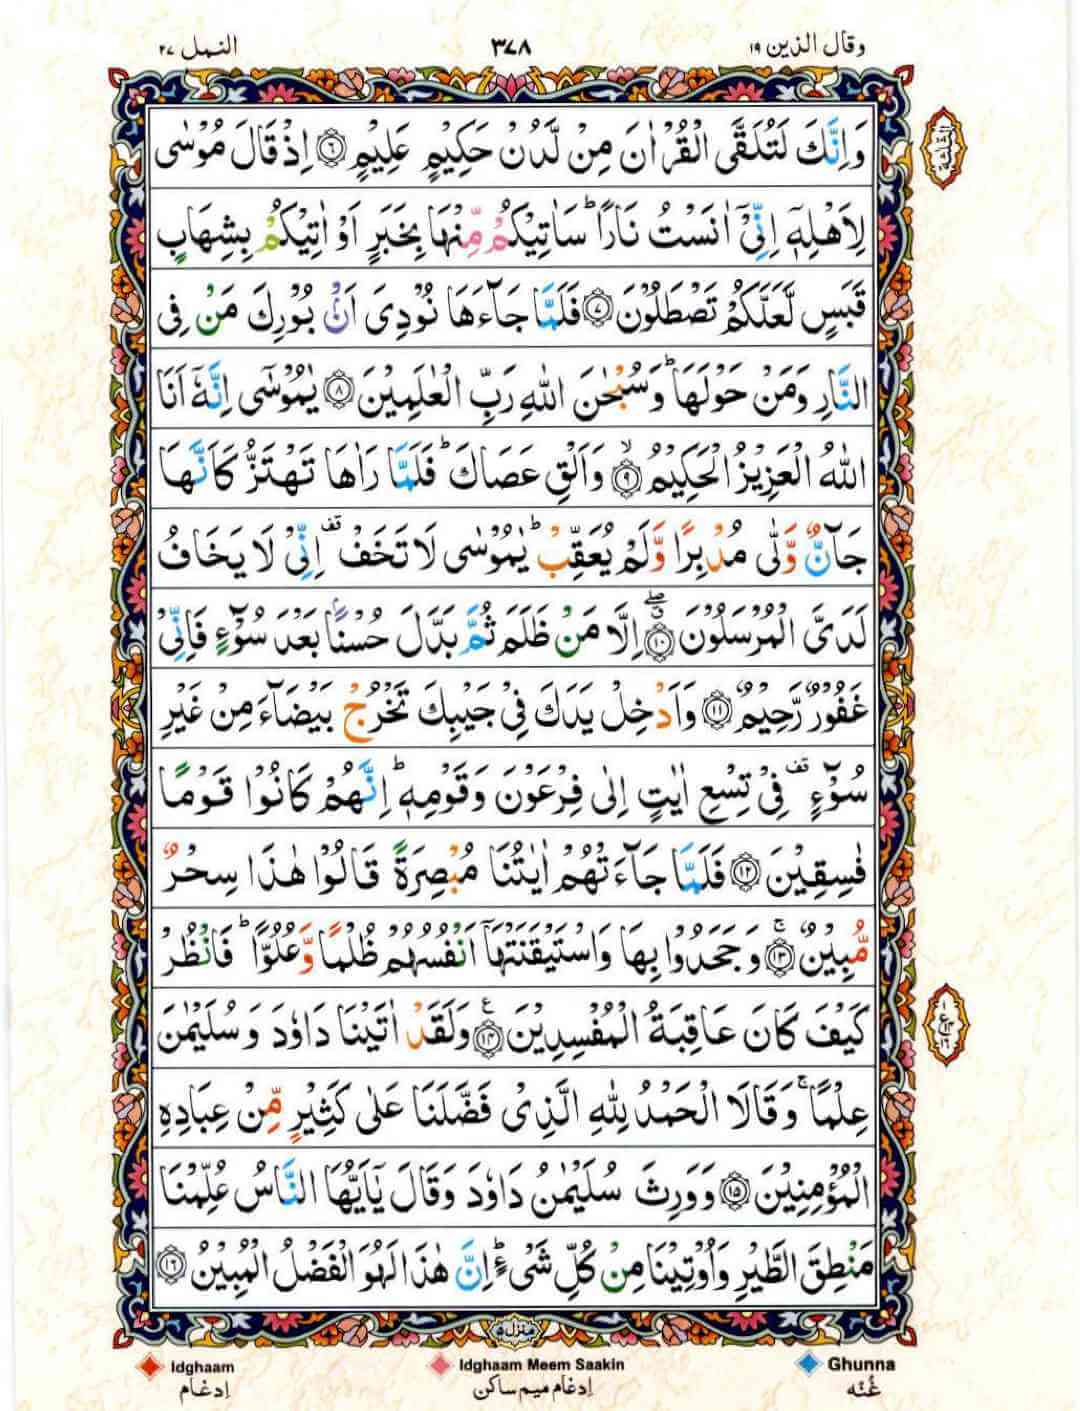 وقال الذین ۱۹
۳۷۸
النمل ۲۷
وَاِنَّكَ لَتُلَقَّى الْقُرْاٰنَ مِنْ لَّدُنْ حَكِيْمٍ عَلِيْمٍ ۶ اِذْ قَالَ مُوْسٰى
لِاَهْلِهٖٓ اِنِّيْٓ اٰنَسْتُ نَارًا ؕ سَاٰتِيْكُمْ مِّنْهَا بِخَبَرٍ اَوْ اٰتِيْكُمْ بِشِهَابٍ
قَبَسٍ لَّعَلَّكُمْ تَصْطَلُوْنَ ۷ فَلَمَّا جَآءَهَا نُوْدِىَ اَنْۢ بُوْرِكَ مَنْ فِى
النَّارِ وَمَنْ حَوْلَهَا ؕ وَسُبْحٰنَ اللّٰهِ رَبِّ الْعٰلَمِيْنَ ۸ يٰمُوْسٰٓى اِنَّهٗٓ اَنَا
اللّٰهُ الْعَزِيْزُ الْحَكِيْمُ ۙ ۹ وَاَلْقِ عَصَاكَ ؕ فَلَمَّا رَاٰهَا تَهْتَزُّ كَاَنَّهَا
جَآنٌّ وَّلّٰى مُدْبِرًا وَّلَمْ يُعَقِّبْ ؕ يٰمُوْسٰى لَا تَخَفْ قف اِنِّىْ لَا يَخَافُ
لَدَىَّ الْمُرْسَلُوْنَ ۱۰ اِلَّا مَنْ ظَلَمَ ثُمَّ بَدَّلَ حُسْنًۢا بَعْدَ سُوْٓءٍ فَاِنِّىْ
غَفُوْرٌ رَّحِيْمٌ ۱۱ وَاَدْخِلْ يَدَكَ فِىْ جَيْبِكَ تَخْرُجْ بَيْضَآءَ مِنْ غَيْرِ
سُوْٓءٍ قف فِىْ تِسْعِ اٰيٰتٍ اِلٰى فِرْعَوْنَ وَقَوْمِهٖ ؕ اِنَّهُمْ كَانُوْا قَوْمًا
فٰسِقِيْنَ ۱۲ فَلَمَّا جَآءَتْهُمْ اٰيٰتُنَا مُبْصِرَةً قَالُوْا هٰذَا سِحْرٌ
مُّبِيْنٌ ۚ ۱۳ وَجَحَدُوْا بِهَا وَاسْتَيْقَنَتْهَآ اَنْفُسُهُمْ ظُلْمًا وَّعُلُوًّا ؕ فَانْظُرْ
كَيْفَ كَانَ عَاقِبَةُ الْمُفْسِدِيْنَ ع ۱۴ وَلَقَدْ اٰتَيْنَا دَاوٗدَ وَسُلَيْمٰنَ
عِلْمًا ۚ وَقَالَا الْحَمْدُ لِلّٰهِ الَّذِىْ فَضَّلَنَا عَلٰى كَثِيْرٍ مِّنْ عِبَادِهِ
الْمُؤْمِنِيْنَ ۱۵ وَوَرِثَ سُلَيْمٰنُ دَاوٗدَ وَقَالَ يٰٓاَيُّهَا النَّاسُ عُلِّمْنَا
مَنْطِقَ الطَّيْرِ وَاُوْتِيْنَا مِنْ كُلِّ شَىْءٍ ؕ اِنَّ هٰذَا لَهُوَ الْفَضْلُ الْمُبِيْنُ ۱۶
منزل ۵
Idghaam
Idghaam Meem Saakin
Ghunna
اِدغام
اِدغام میم ساکن
غُنّه